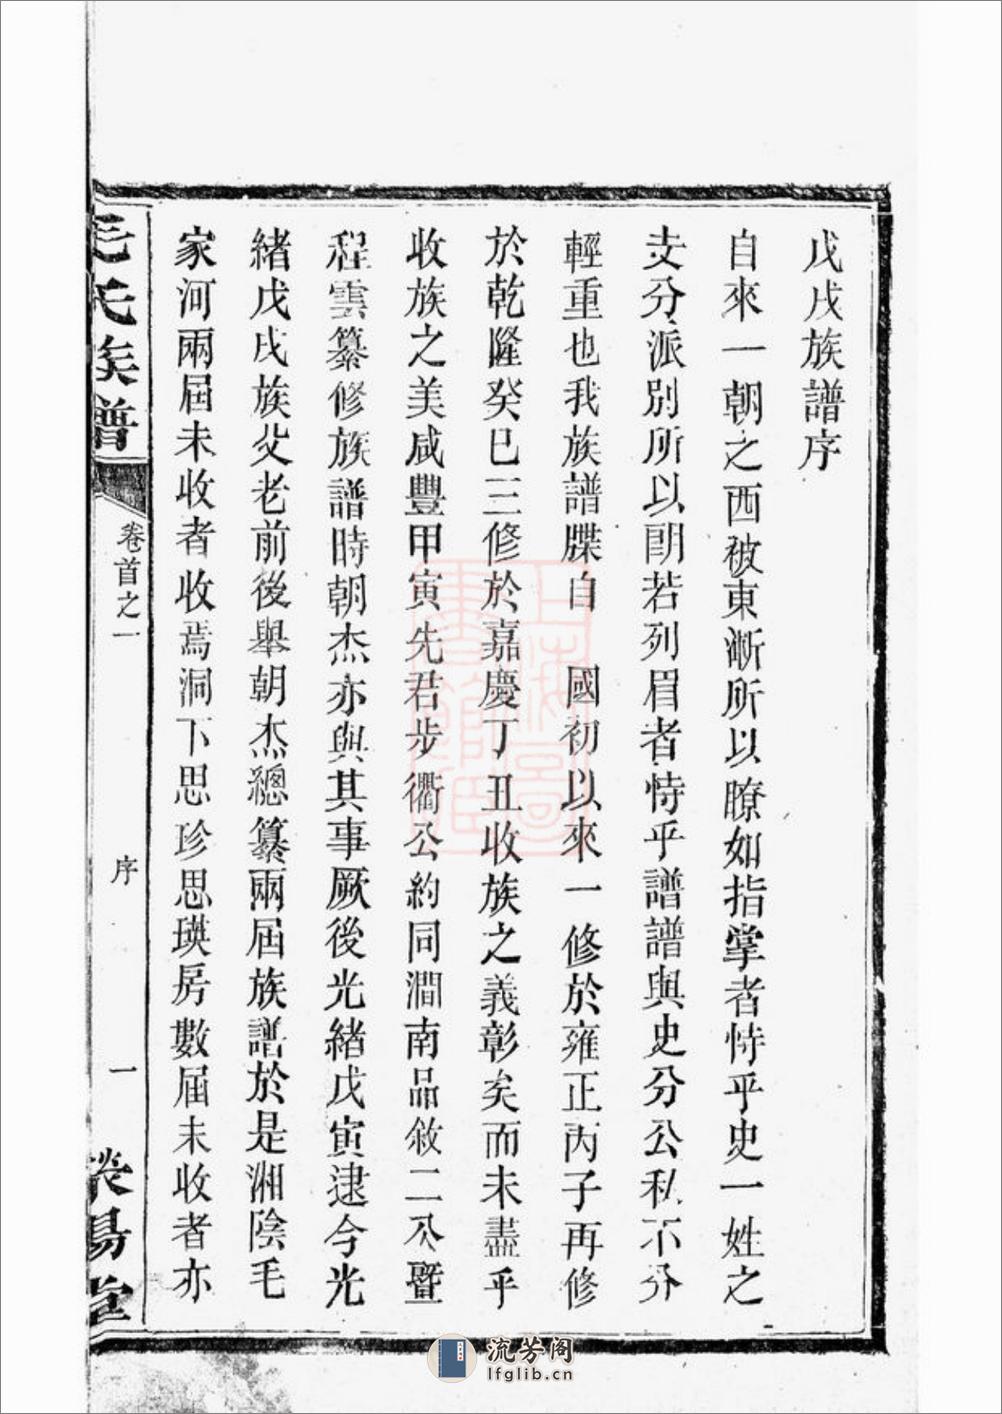 戊戌族譜序
自來一朝之西被東漸所以瞭如指掌者恃乎史一姓之
支分派別所以朗若列眉者恃乎譜譜與史分公私不分
輕重也我族譜牒自　國初以來一修於雍正丙子再修
於乾隆癸巳三修於嘉慶丁丑收族之義彰矣而未盡乎
收族之美咸豐甲寅先君步衢公約同澗南品敘二公暨
程雲纂修族譜時朝杰亦與其事厥後光緒戊寅逮今光
緒戊戌族父老前後舉朝杰總纂兩屆族譜於是湘陰毛
家河兩屆未收者收焉洞下思珍思瑛房數屆未收者亦
毛氏族譜
卷首之一
序
一
上海圖書館藏
流芳阁
lfglib.cn